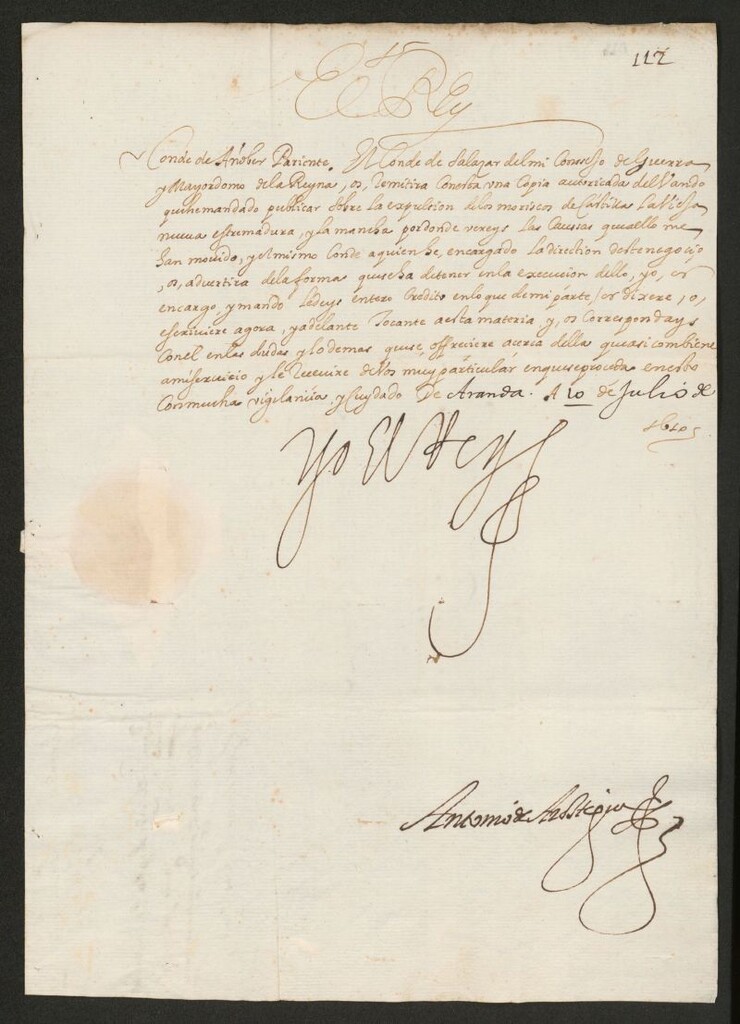 117
El Rey
Conde de Añober Pariente. El Conde de Salazar del mi Conssejo de Guerra
y Mayordomo de la Reyna, os, Remitira Con esta una Copia autoricada del Vando
que he mandado publicar sobre la expulsion de los moriscos de Castilla La Vieja
nueva estremadura, y la mancha por donde vereys Las Caussas que a ello me
han movido, y el mismo Conde a quien he, encargado La direction deste negocio
, os, advertira de la forma que se ha de tener en la execucion dello, yo, os
encargo, y mando Le deys entero Credito en lo que de mi parte / os dixere, o,
escriviere agora, y adelante Tocante a esta materia y, os Correspondays
Con el en las dudas y Lo demas que se, offreciere acerca della que asi combiene
a mi servicio y Le Recivire de Vos muy particular en que se proceda en esto
Con mucha vigilancia, y Cuydado De Aranda. A 10 de Julio de
1610
Yo El Rey
Antonio de Arostegui